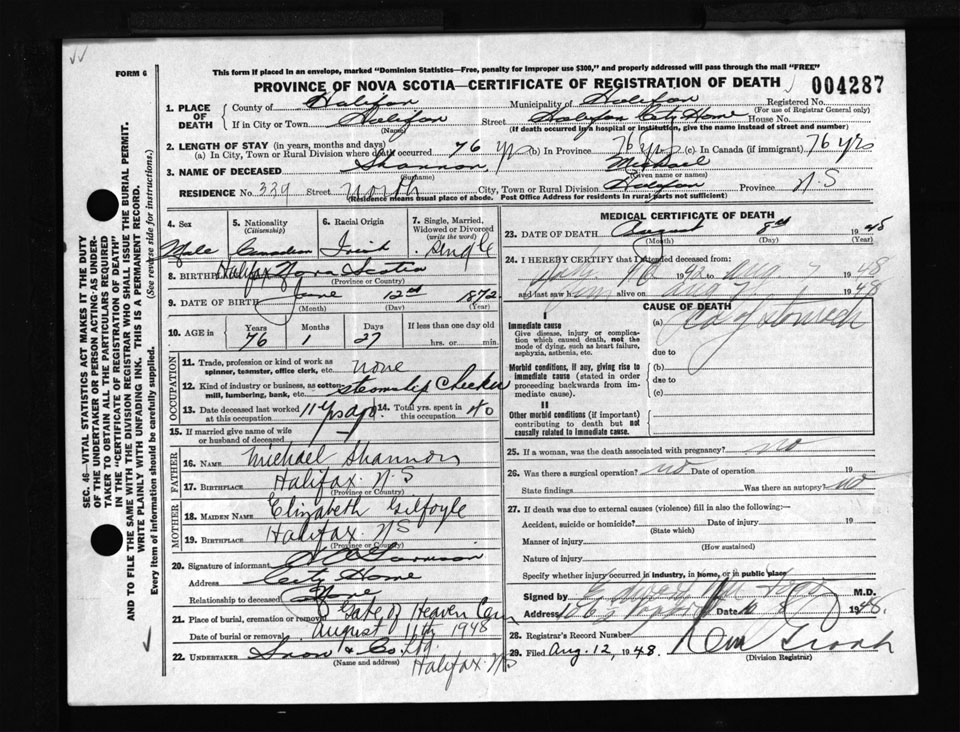 FORM 6
This form if placed in an envelope, marked "Dominion Statistics—Free, penalty for improper use $300," and properly addressed will pass through the mail "FREE"
PROVINCE OF NOVA SCOTIA—CERTIFICATE OF REGISTRATION OF DEATH
004287
1. PLACE OF DEATH
County of Halifax Municipality of Halifax Registered No.
(For use of Registrar General only)
If in City or Town Halifax Street Halifax City Home House No.
(Name) (If death occurred in a hospital or institution, give the name instead of street and number)
2. LENGTH OF STAY (in years, months and days)
(a) In City, Town or Rural Division where death occurred 76 yrs (b) In Province 76 yrs (c) In Canada (if immigrant) 76 yrs
3. NAME OF DECEASED Shannon, Michael
(Surname) (Given name or names)
RESIDENCE No. 339 Street North City, Town or Rural Division Halifax Province N.S
(Residence means usual place of abode. Post Office Address for residents in rural parts not sufficient)
4. Sex Male
5. Nationality (Citizenship) Canadian
6. Racial Origin Irish
7. Single, Married, Widowed or Divorced (write the word) Single
8. BIRTHP Halifax Nova Scotia
(Province or Country)
9. DATE OF BIRTH June 12th 1872
(Month) (Day) (Year)
10. AGE in Years Months Days If less than one day old
76 1 27 hrs. or min.
OCCUPATION
11. Trade, profession or kind of work as spinner, teamster, office clerk, etc. none
12. Kind of industry or business, as cotton mill, lumbering, bank, etc. Steamship Checker
13. Date deceased last worked at this occupation 11 yrs ago 14. Total yrs. spent in this occupation 40
15. If married give name of wife or husband of deceased —
FATHER
16. NAME Michael Shannon
17. BIRTHPLACE Halifax N.S
(Province or Country)
MOTHER
18. MAIDEN NAME Elizabeth Gilfoyle
19. BIRTHPLACE Halifax NS
(Province or Country)
20. Signature of informant
Address City Home
Relationship to deceased None
21. Place of burial, cremation or removal Gate of Heaven Cem
Date of burial or removal August 11th 1948
22. UNDERTAKER Snow & Co. Ltd.
(Name and address) Halifax N.S
MEDICAL CERTIFICATE OF DEATH
23. DATE OF DEATH August 8th 1948
(Month) (Day) (Year)
24. I HEREBY CERTIFY that I attended deceased from:
to Aug 7 1948
and last saw him alive on Aug 7 1948
CAUSE OF DEATH
I
Immediate cause
Give disease, injury or complication which caused death, not the mode of dying, such as heart failure, asphyxia, asthenia, etc.
(a) Ca of Stomach
due to
Morbid conditions, if any, giving rise to immediate cause (stated in order proceeding backwards from immediate cause).
(b)
due to
(c)
II
Other morbid conditions (if important) contributing to death but not causally related to immediate cause.
25. If a woman, was the death associated with pregnancy? no
26. Was there a surgical operation? no Date of operation 19
State findings Was there an autopsy? no
27. If death was due to external causes (violence) fill in also the following:—
Accident, suicide or homicide? Date of injury 19
(State which)
Manner of injury
(How sustained)
Nature of injury
Specify whether injury occurred in industry, in home, or in public place
Signed by M.D.
Address Date 1948
28. Registrar's Record Number
29. Filed Aug. 12, 1948.
(Division Registrar)
SEC. 46—VITAL STATISTICS ACT MAKES IT THE DUTY
OF THE UNDERTAKER OR PERSON ACTING AS UNDERTAKER TO OBTAIN ALL THE PARTICULARS REQUIRED
IN THE "CERTIFICATE OF REGISTRATION OF DEATH"
AND TO FILE THE SAME WITH THE DIVISION REGISTRAR WHO SHALL ISSUE THE BURIAL PERMIT.
WRITE PLAINLY WITH UNFADING INK. THIS IS A PERMANENT RECORD.
Every item of information should be carefully supplied. (See reverse side for instructions.)